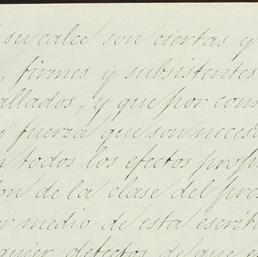 su calce son ciertas y
, firmes y subsistentes
allados, y que por cons
y fuerza que son neces
n todos los efectos prop
ión de la clase del pres
r medio de esta escrit
quier defectos de que